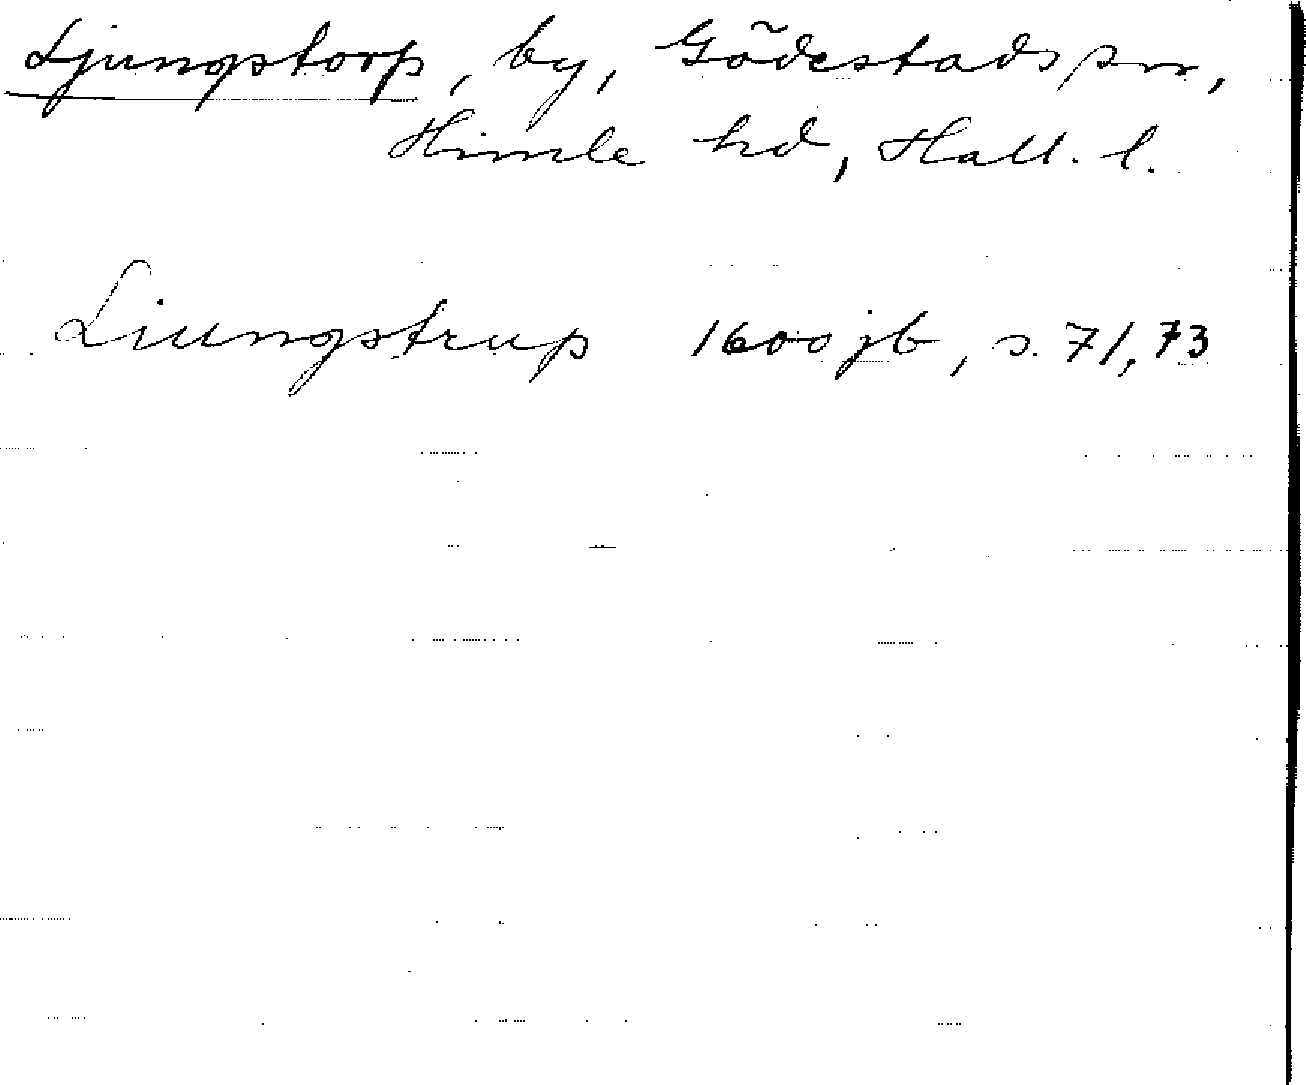 Ljungstorp, by, Gödestads sn,
Himle hd, Hall. l.
Liungstrup 1600 jb, s. 71, 73